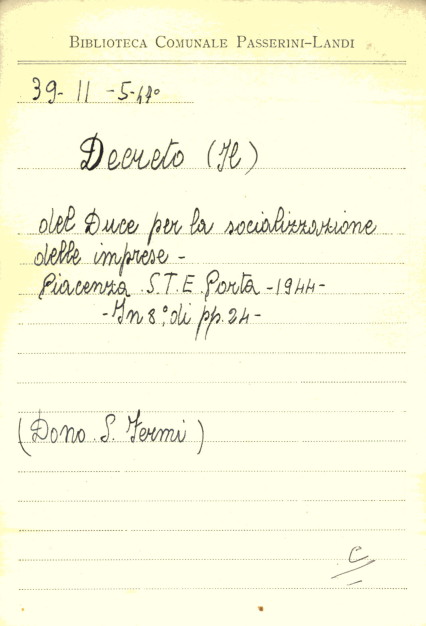 BIBLIOTECA COMUNALE PASSERINI-LANDI
39- II -5-47°
Decreto (Il)
del Duce per la socializzazione
delle imprese -
Piacenza. S.T.E. Porta - 1944 -
- In 8°, di pp. 24 -
(Dono S. Fermi)
C